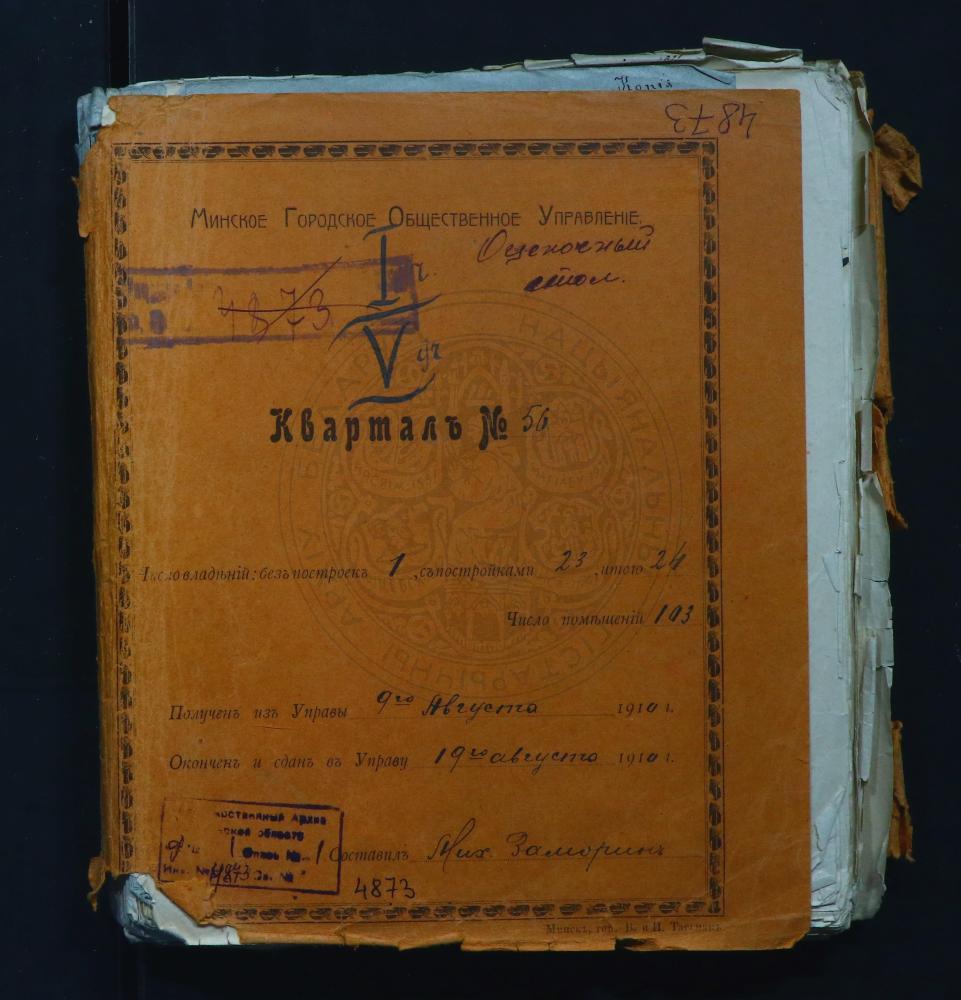 Копія
4873
Минское Городское Общественное Управленіе.
Оценочный
стол.
I ч.
4873
V уч
Кварталъ № 56
Число владѣній: безъ построекъ 1, съ постройками 23, итого 24
Число помѣщеній 103
Полученъ изъ Управы 9го Августа 1910 г.
Оконченъ и сданъ въ Управу 19го августа 1910 г.
Архив
области
Ф. № 1 Опись № 1
Инв. № 4873 Св. №
Составилъ Мих. Заморинъ
4873
Минскъ, тор. В. и И.
АРХІЎ БЕЛАРУСІ НАЦЫЯНАЛЬНЫ ГІСТАРЫЧНЫ